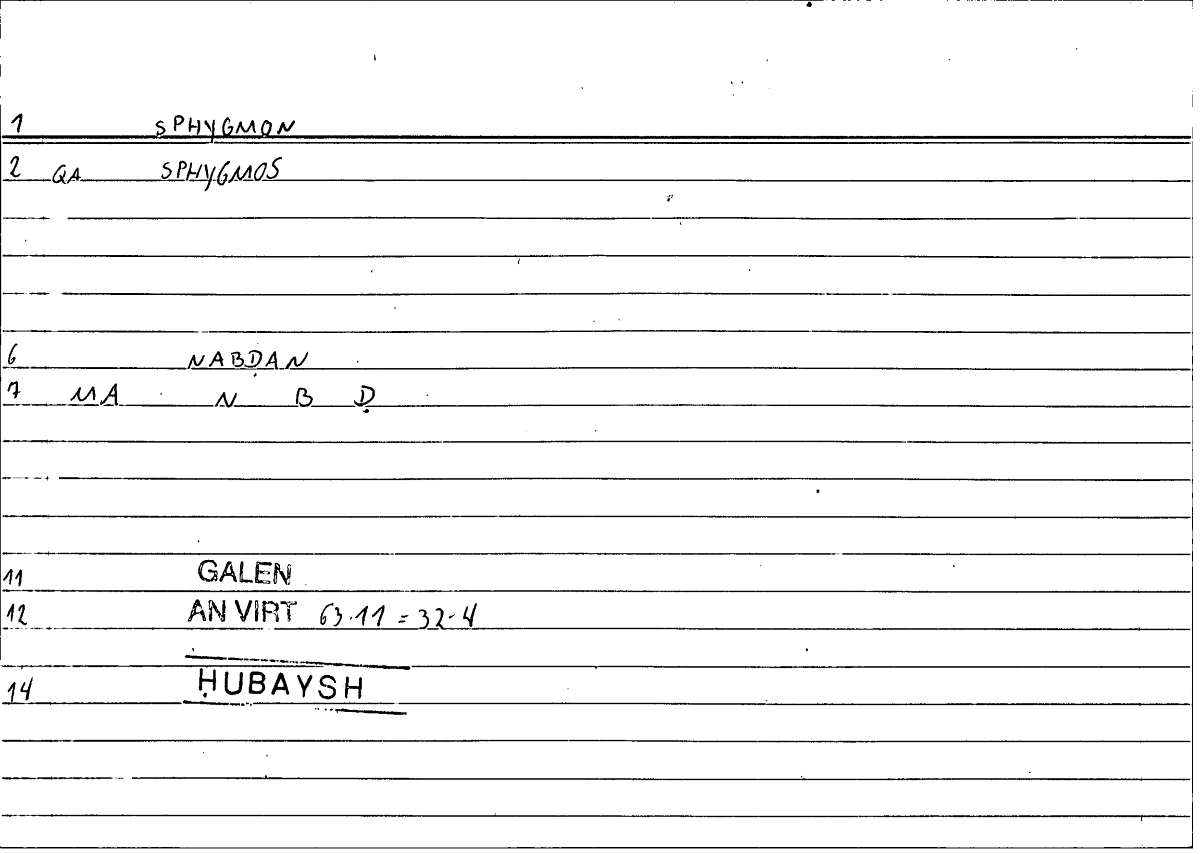 1 SPHYGMON
2 QA SPHYGMOS
6 NABḌAN
7 MA N B Ḍ
11 GALEN
12 AN VIRT 63-11 = 32-4
14 ḤUBAYSH